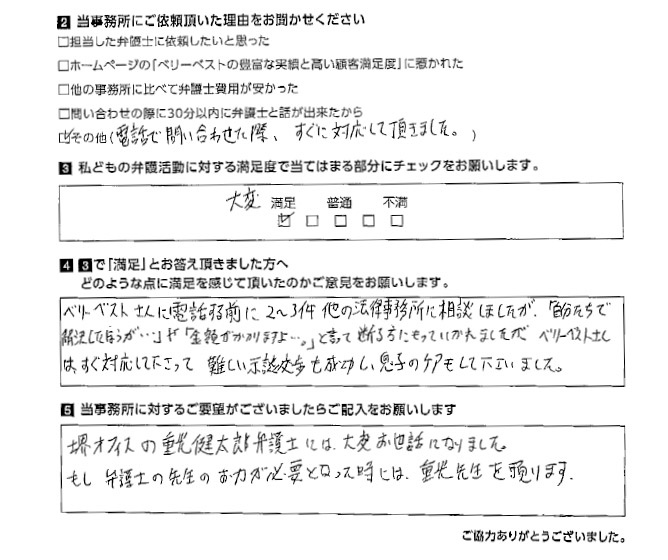 2 当事務所にご依頼頂いた理由をお聞かせください
□担当した弁護士に依頼したいと思った
□ホームページの「ベリーベストの豊富な実績と高い顧客満足度」に惹かれた
□他の事務所に比べて弁護士費用が安かった
□問い合わせの際に30分以内に弁護士と話が出来たから
☑その他(電話で問い合わせた際、すぐに対応して頂きました。)
3 私どもの弁護活動に対する満足度で当てはまる部分にチェックをお願いします。
大変 満足 普通 不満
☑ □ □ □ □
4 3で「満足」とお答え頂きました方へ
どのような点に満足を感じて頂いたのかご意見をお願いします。
ベリーベストさんに電話する前に2〜3件他の法律事務所に相談しましたが、「自分たちで
解決したほうが…」や「金額がかかりますよ…。」と言って断る方にもっていかれましたが ベリーベストさん
は、すぐ対応して下さって 難しい示談交渉も成功し息子のケアもして下さいました。
5 当事務所に対するご要望がございましたらご記入をお願いします
堺オフィスの重光健太郎弁護士には、大変お世話になりました。
もし 弁護士の先生のお力が必要となった時には、重光先生を頼ります.
ご協力ありがとうございました。